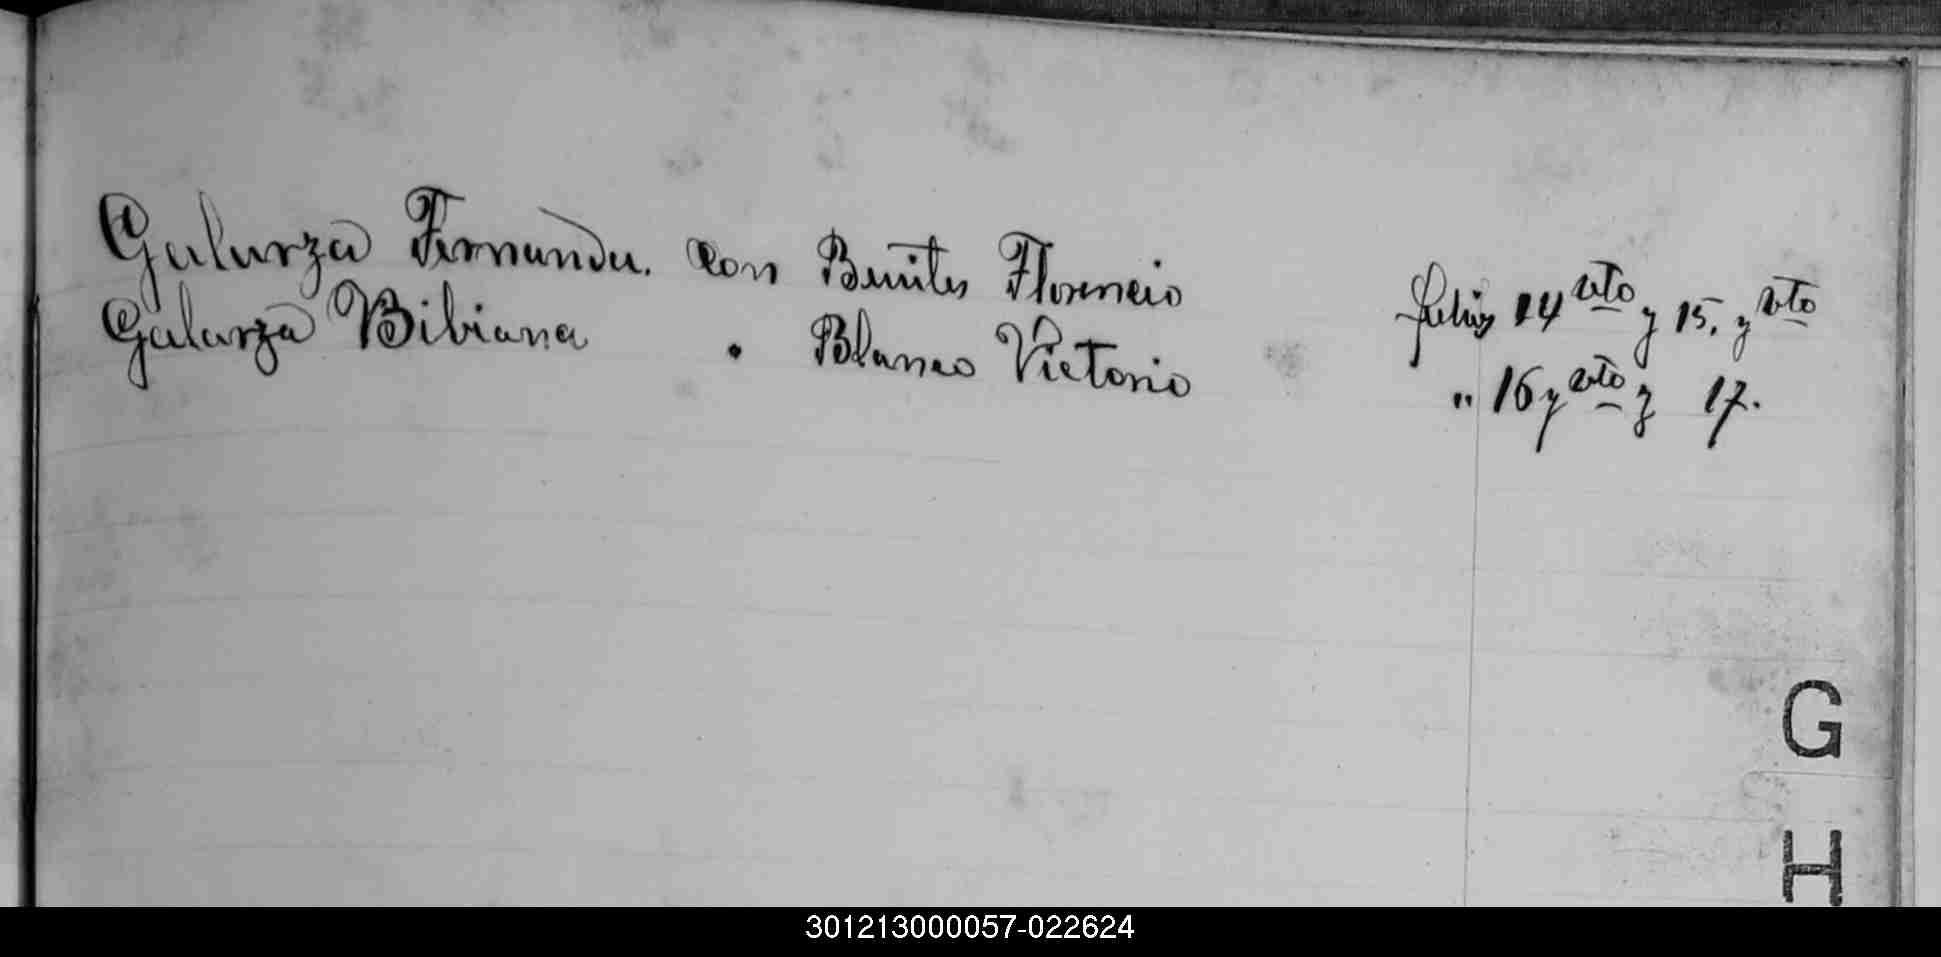 Galarza Fernanda. con Benites Florencio folios 14 vto y 15. y vto
Galarza Bibiana " Blanco Victorio " 16 y vto y 17.
G
H
301213000057-022624